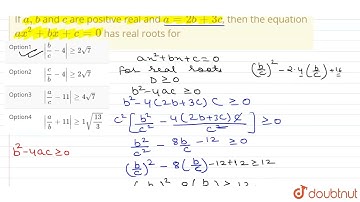 If a, b and c are positive real and a = 2b + 3c, then the equation
ax² + bx + c = 0 has real roots for
Option1 |b/c − 4| ≥ 2√7
Option2 |c/b − 4| ≥ 2√7
Option3 |a/c − 11| ≥ 4√7
Option4 |a/b + 11| ≥ 1√(13/3)
b² − 4ac ≥ 0
ax² + bx + c = 0
For real roots
D ≥ 0
b² − 4ac ≥ 0
b² − 4(2b+3c) c ≥ 0
c² [b²/c² − 4(2b+3c)c/c²] ≥ 0
b²/c² − 8b/c − 12 ≥ 0
(b/c)² − 8(b/c) − 12 + 12 ≥ 12
(b/c)² − 2·4(b/c) + 16
doubtnut